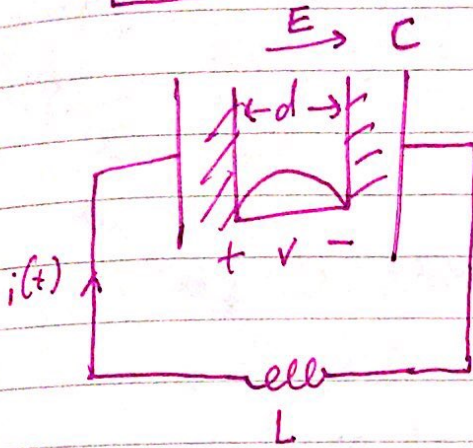 E C
d
+ v −
i(t)
L